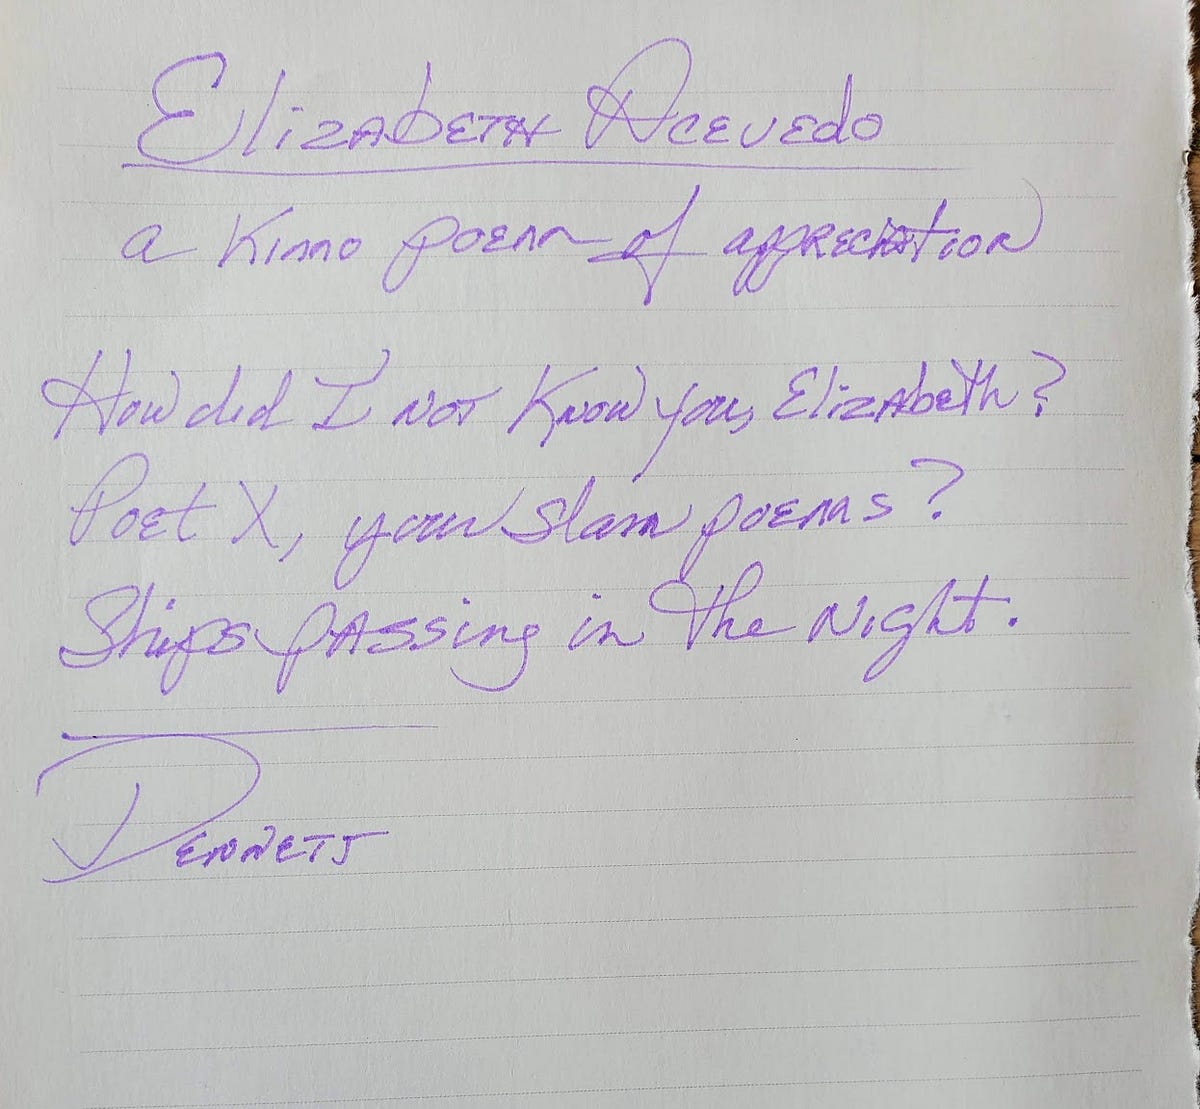 Elizabeth Acevedo
a Kimo poem of appreciation
How did I not know you, Elizabeth?
Poet X, your slam poems?
Ships passing in the night.
Dennett